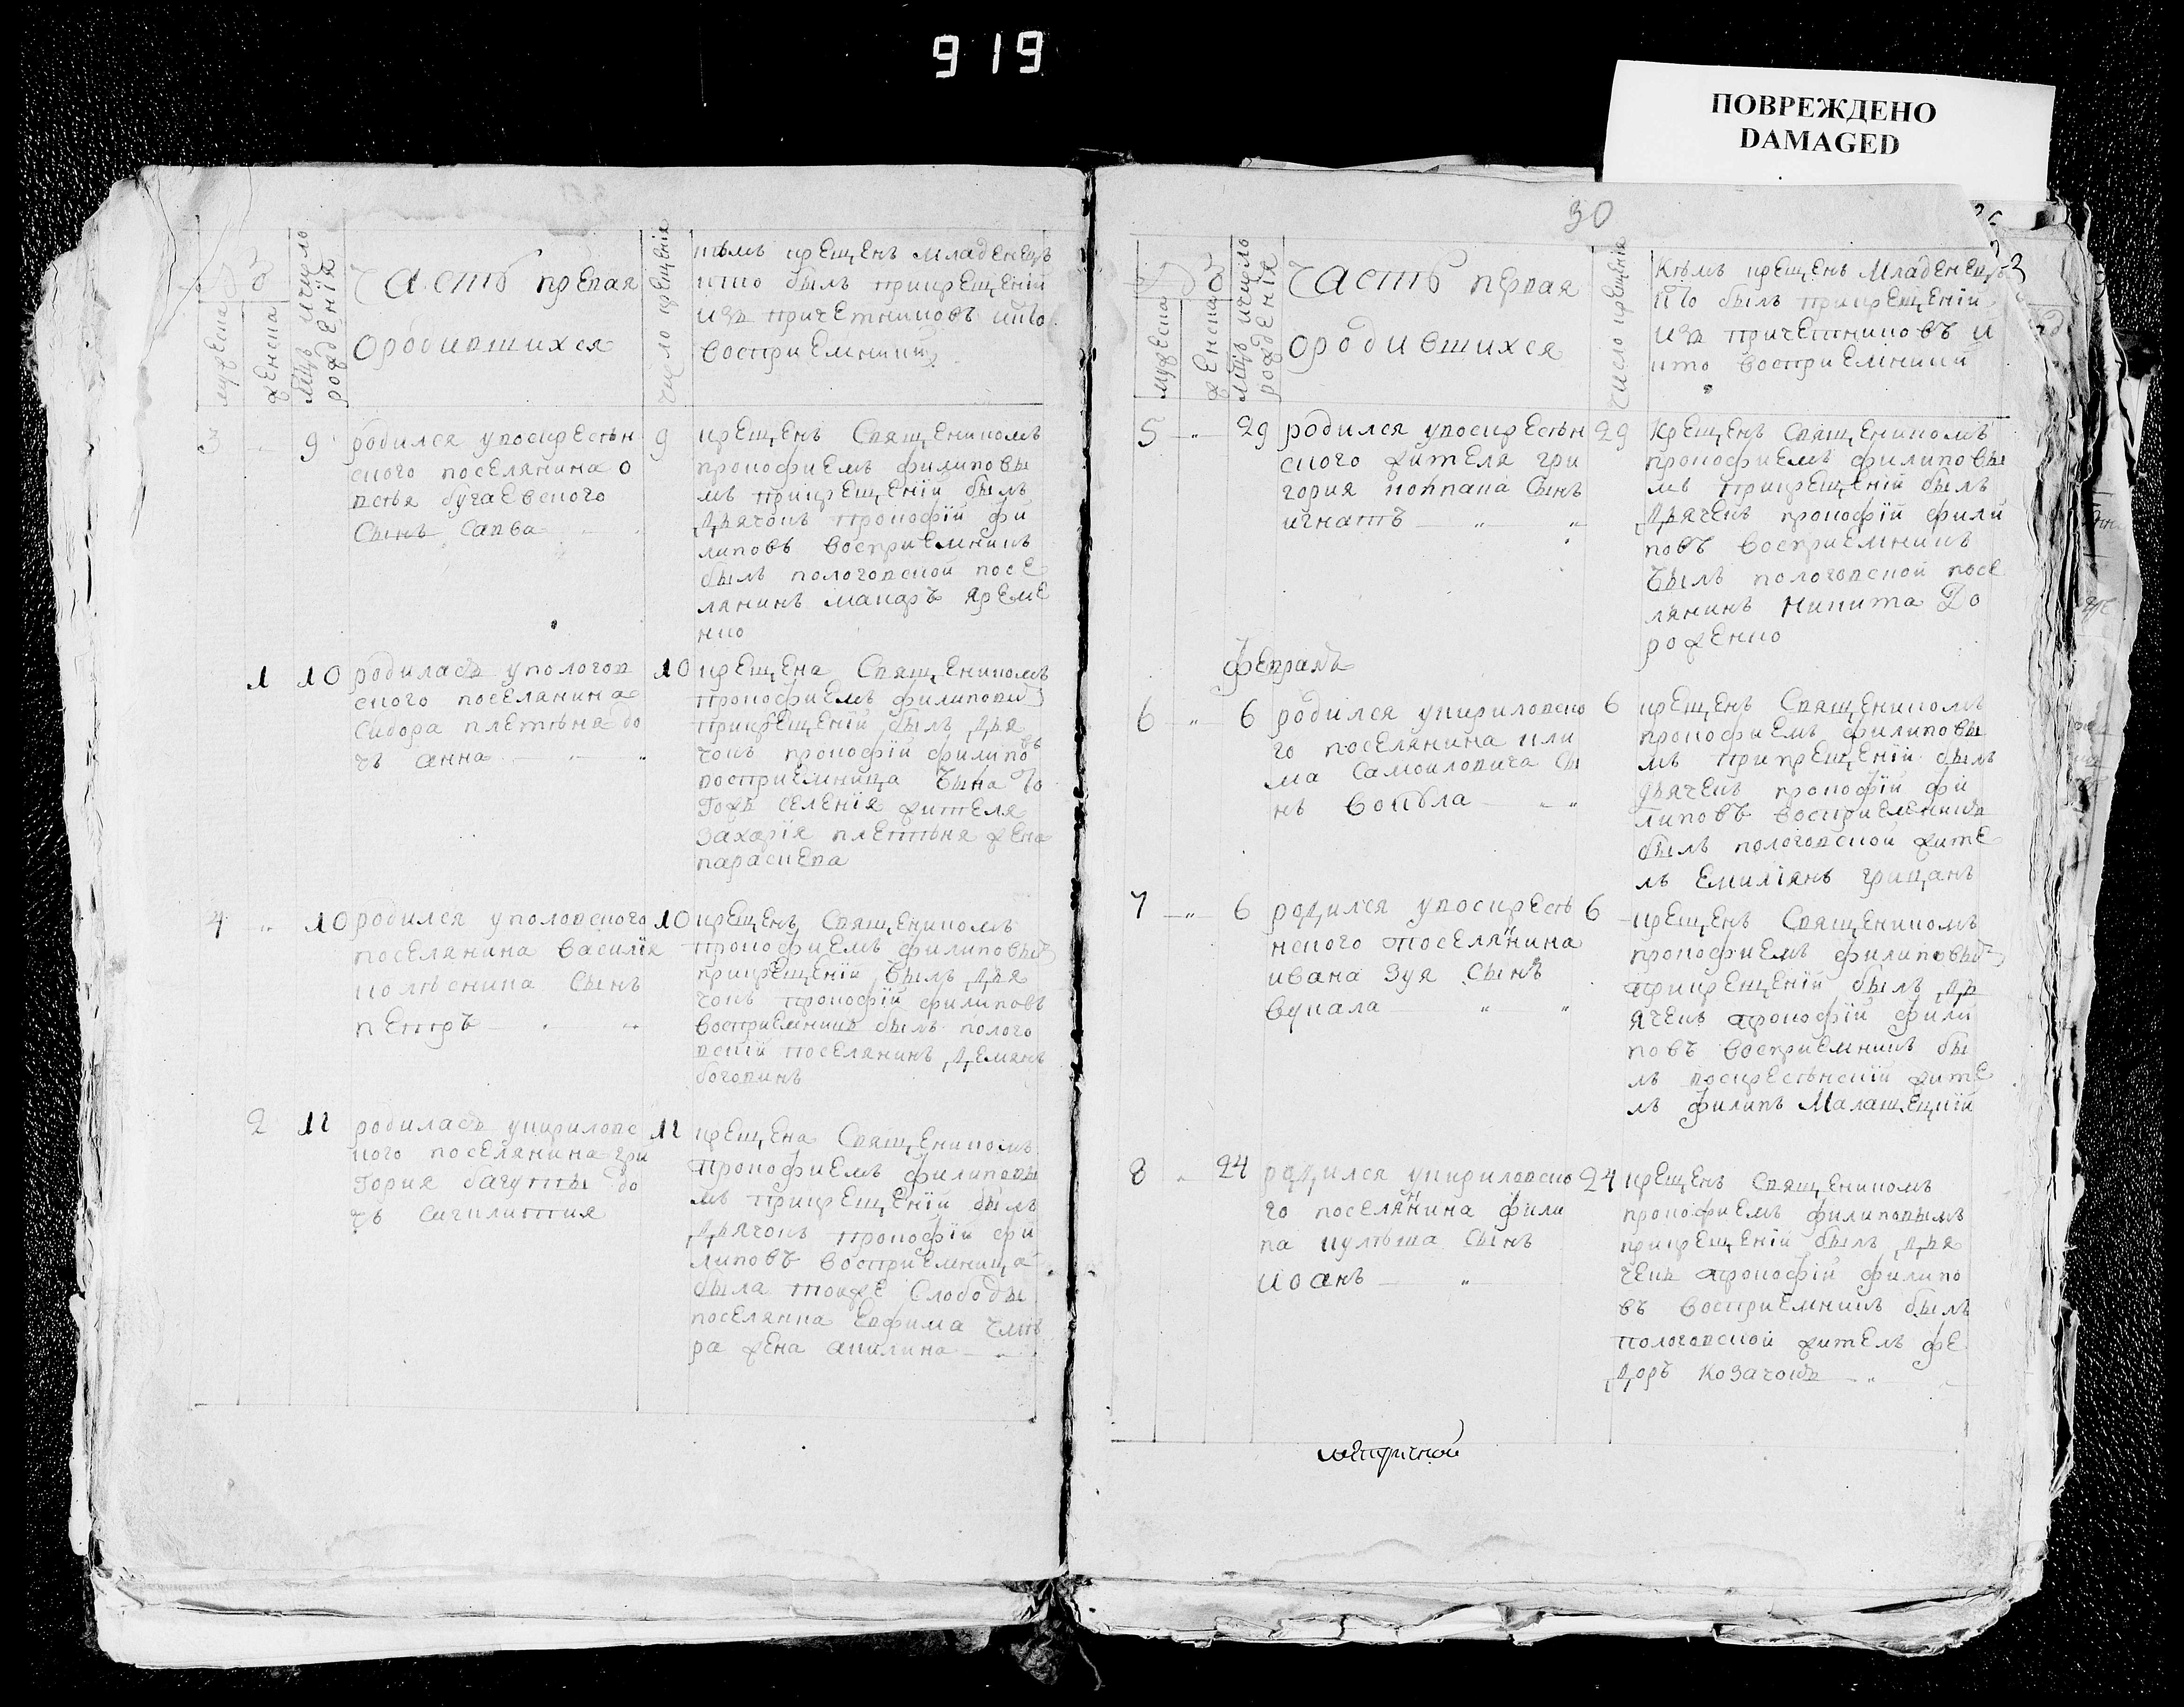 919
ПОВРЕЖДЕНО
DAMAGED
мужеска
женска
мцъ ичисло
рожденїя
Часть первая
ородившихся
число крещенїя
кѣмъ крещенъ Младенецъ
кто былъ прикрещенїй
изъ причетниковъ икто
восприемники
3
9
родился увоскресѣн
ского поселянина о
встѣя бугаевского
Сынъ Савва
9
крещенъ Священикомъ
прокофиемъ филиповы
мъ прикрещенїй былъ
Дьячокъ прокофїй фи
липовъ восприемникъ
былъ пологовской посе
лянинъ макаръ яреме
нко
1
10
родилась упологов
ского поселянина
Сидора плетѣня до
чъ анна
10
крещена Священикомъ
прокофиемъ филиповы
прикрещенїй былъ дья
чокъ прокофїй филиповъ
восприемница была то
гожъ селенїя жителя
Захарїя плетѣня жена
параскева
4
10
родился уполовского
поселянина василїя
колѣсника Сынъ
петръ
10
крещенъ Священикомъ
прокофиемъ филиповы
прикрещенїй былъ дья
чокъ прокофїй филиповъ
восприемникъ былъ полого
вскїй поселянинъ Демянъ
боговинъ
2
11
родилась укириловс
кого поселянина гри
гория багуты до
чъ сигклиткия
11
крещена Священикомъ
прокофиемъ филиповы
мъ прикрещенїй былъ
Дьячокъ прокофїй фи
липовъ восприемница
была тойже Слободы
поселянка евфима чми
ра жена акилина
30
мужеска
женска
мцъ ичисло
рожденїя
Часть первая
ородившихся
число крещенїя
Кѣмъ крещенъ Младенецъ
кто былъ прикрещенїй
изъ причетниковъ и
кто восприемники
5
29
родился увоскресѣн
ского жителя гри
гория ковпана Сынъ
игнатъ
29
Крещенъ Священикомъ
прокофиемъ филиповы
мъ прикрещенїй былъ
Дьячекъ прокофїй фили
повъ восприемникъ
былъ пологовской посе
лянинъ Никита До
роженко
февраль
6
6
родился укириловско
го поселянина кли
ма Самойловича Сы
нъ
6
крещенъ Священикомъ
прокофиемъ филиповы
мъ прикрещенїй былъ
дьячекъ прокофїй фи
липовъ восприемникъ
былъ пологовской жите
ль Емилїянъ грицанъ
7
6
родился увоскресѣ
нского поселянина
ивана Зуя Сынъ
вукала
6
крещенъ Священикомъ
прокофиемъ филиповы
прикрещенїй былъ дь
ячекъ прокофїй фили
повъ восприемникъ бы
лъ воскресѣнскїй жите
ль филипъ Малашецкїй
8
24
родился укириловско
го поселянина фили
па кулѣша Сынъ
иоанъ
24
крещенъ Священикомъ
прокофиемъ филиповымъ
прикрещенїй былъ дья
чекъ прокофїй филипо
въ восприемникъ былъ
пологовской житель фе
Доръ Козачокъ